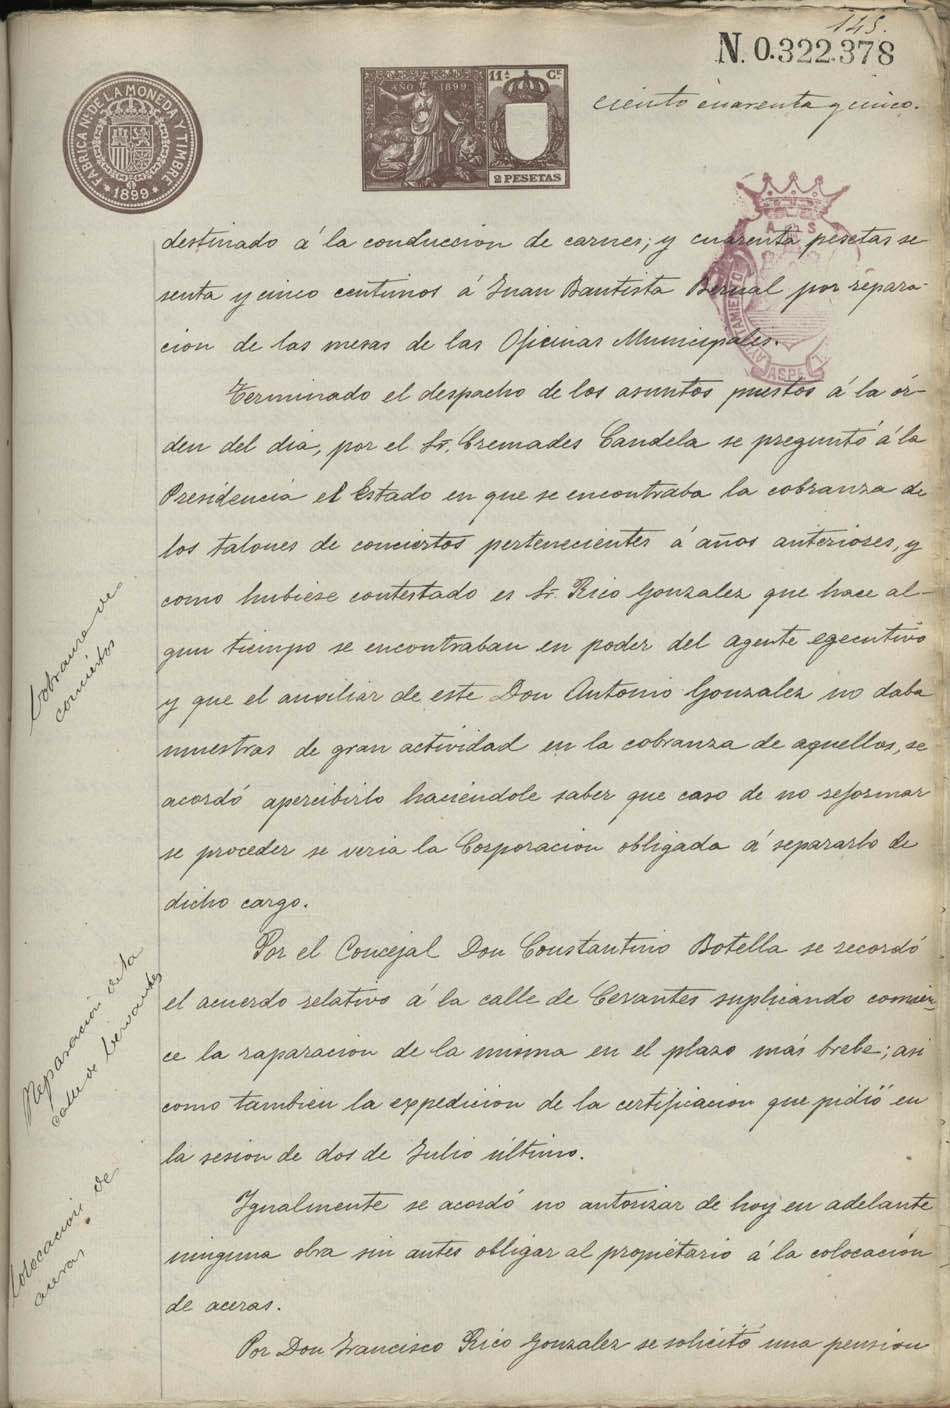 145.
N. 0.322.378
ciento cuarenta y cinco.
FABRICA N.L DE LA MONEDA Y TIMBRE
* 1899 *
AÑO 1899
11.ª Ce
2 PESETAS
A S
AYUNTAMIENTO
ASPE
destinado á la conduccion de carnes; y cuarenta pesetas se
senta y cinco centimos á Juan Bautista Bernal por repara-
cion de las mesas de las Oficinas Municipales.
Terminado el despacho de los asuntos puestos á la ór-
den del dia, por el Sr. Cremades Candela se preguntó á la
Presidencia el Estado en que se encontraba la cobranza de
los talones de conciertos pertenecientes á años anteriores, y
como hubiese contestado es Sr. Rico Gonzalez que hace al-
gun tiempo se encontraban en poder del agente egecutivo
y que el auxiliar de este Don Antonio Gonzalez no daba
muestras de gran actividad en la cobranza de aquellos, se
acordó apercibirlo haciendole saber que caso de no reformar
se proceder se veria la Corporacion obligada á separarlo de
dicho cargo.
Por el Concejal Don Constantino Botella se recordó
el acuerdo relativo á la calle de Cervantes suplicando comien-
ce la raparacion de la misma en el plazo más brebe; asi
como tambien la expedicion de la certificacion que pidió en
la sesion de dos de Julio último.
Igualmente se acordó no autorizar de hoy en adelante
ninguna obra sin antes obligar al propietario á la colocacion
de aceras.
Por Don Francisco Rico Gonzalez se solicitó una pension
Cobranza de
conciertos
Reparacion de la
calle de Cervantes
Colocacion de
aceras